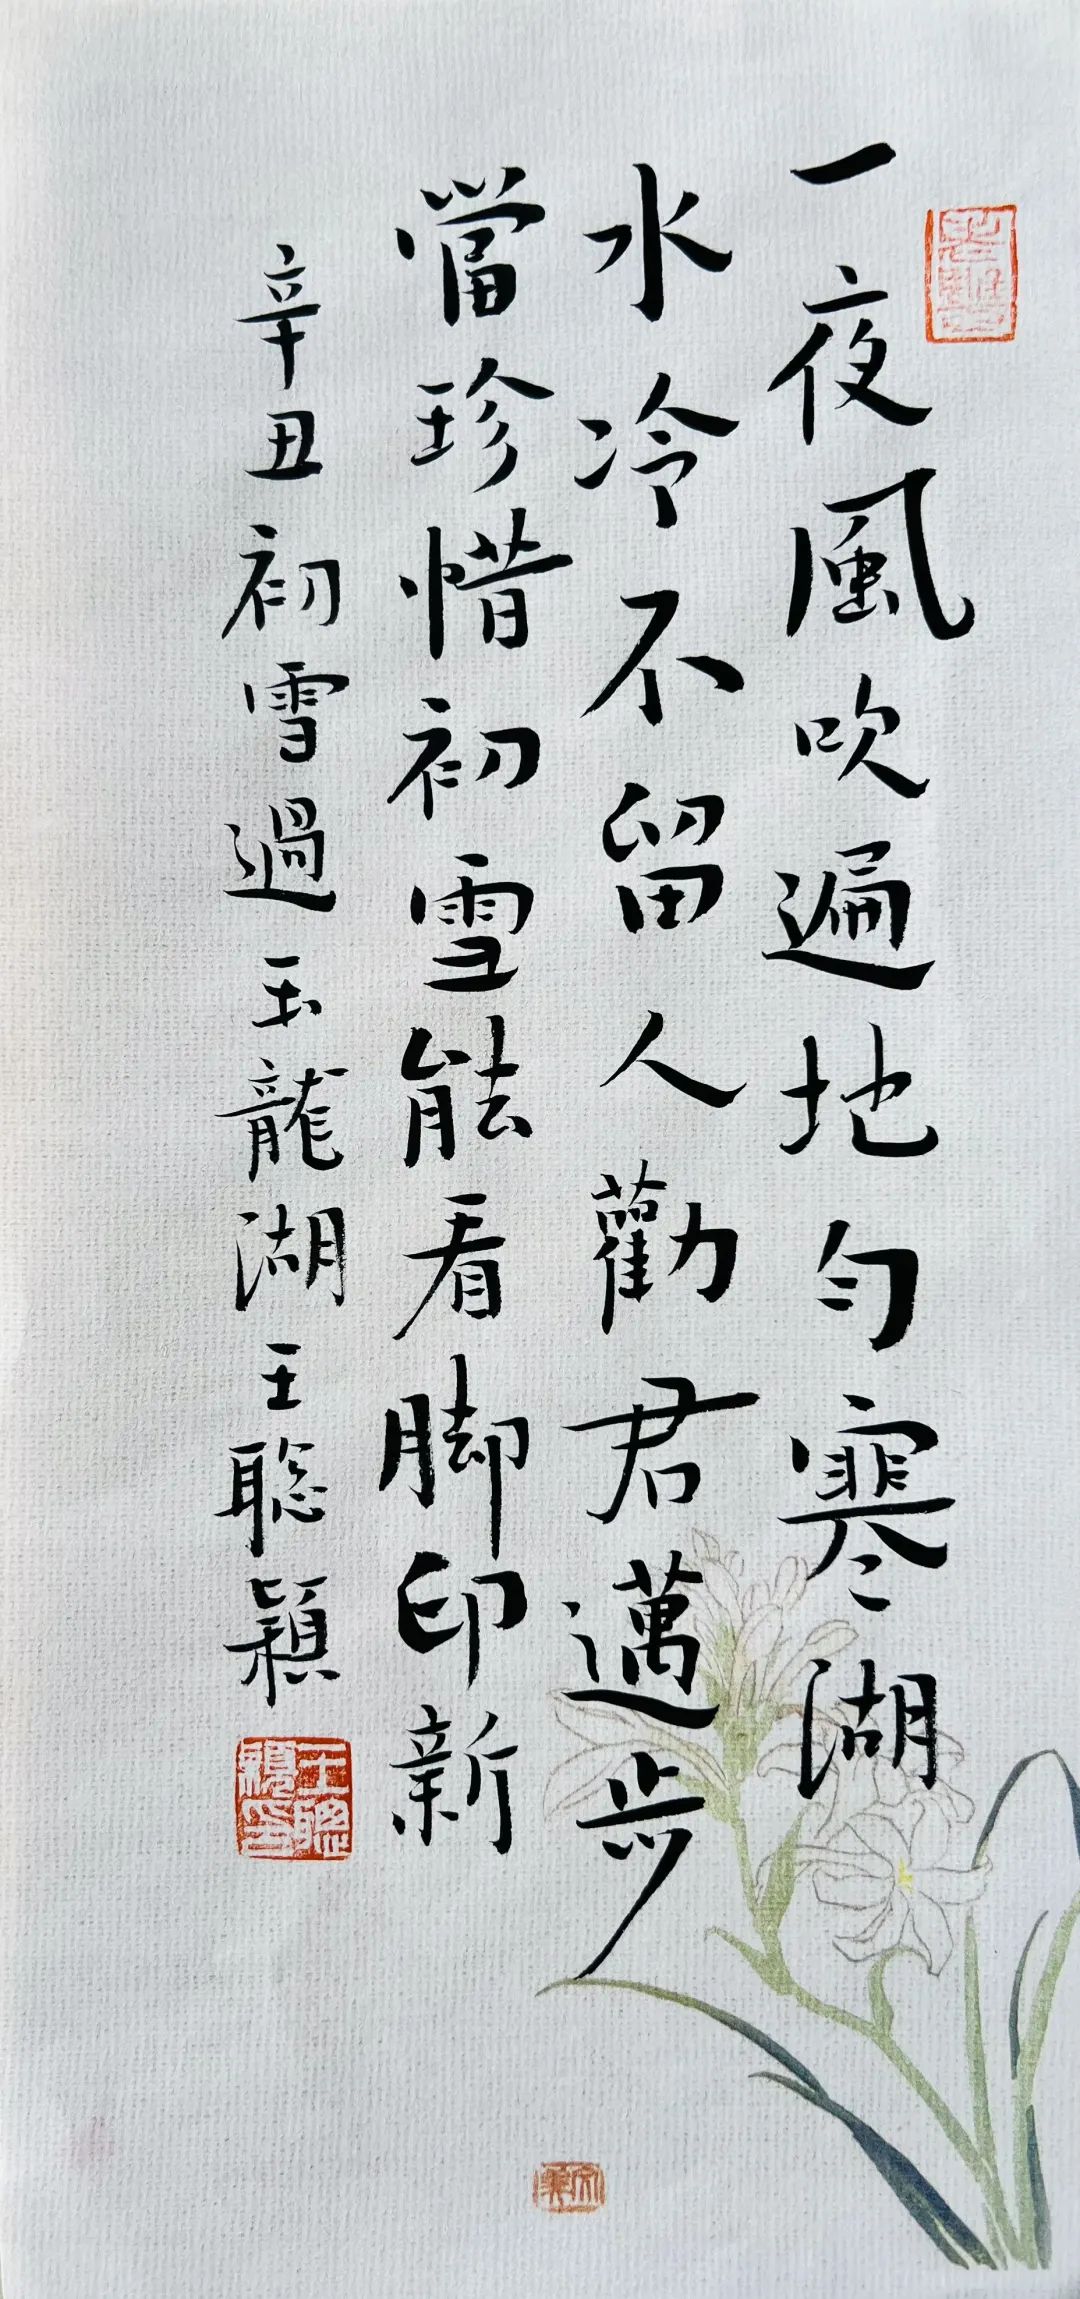 一夜風吹遍地勻寒湖
水冷不留人勸君邁步
當珍惜初雪能看脚印新
辛丑初雪過玉龍湖王聡穎
王聰穎印